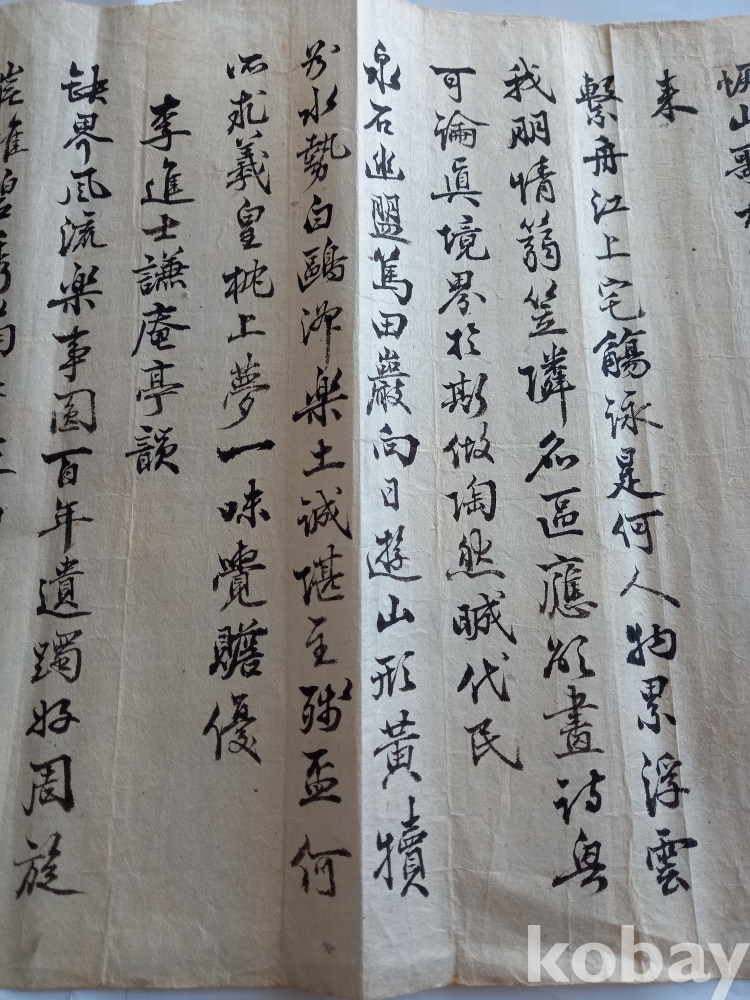 山
来
繫舟江上宅觴詠是何人物累浮雲
我朋情蒻笠隣名區應欲畫詩與
可論眞境界於斯做陶然晠代民
泉石幽盟篤田巖向日遊山形黃犢
分水勢白鷗浮楽土誠堪主殘盃何
所求羲皇枕上夢一味覺贍優
李進士謙庵亭韻
缺界風流楽事圓百年遺躅好周旋
kobay